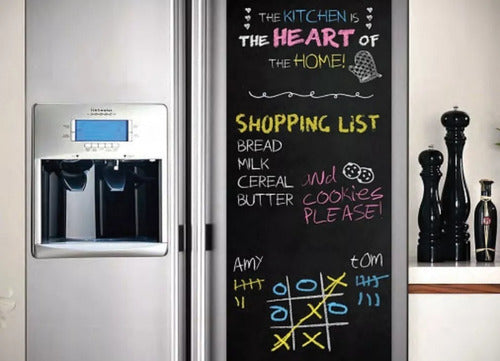 THE KITCHEN IS
THE HEART OF
THE HOME!
SHOPPING LIST
BREAD
MILK
CEREAL
BUTTER
and
COOKIES
PLEASE!
AMY
tOM
O O X
O X O
X X